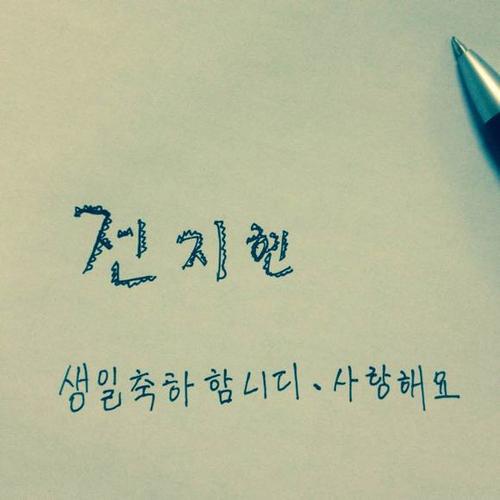 전지현
생일축하합니다. 사랑해요